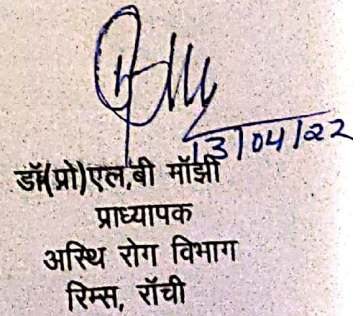 13/04/22
डॉ(प्रो)एल,बी मॉझी
प्राध्यापक
अस्थि रोग विभाग
रिम्स, रॉची